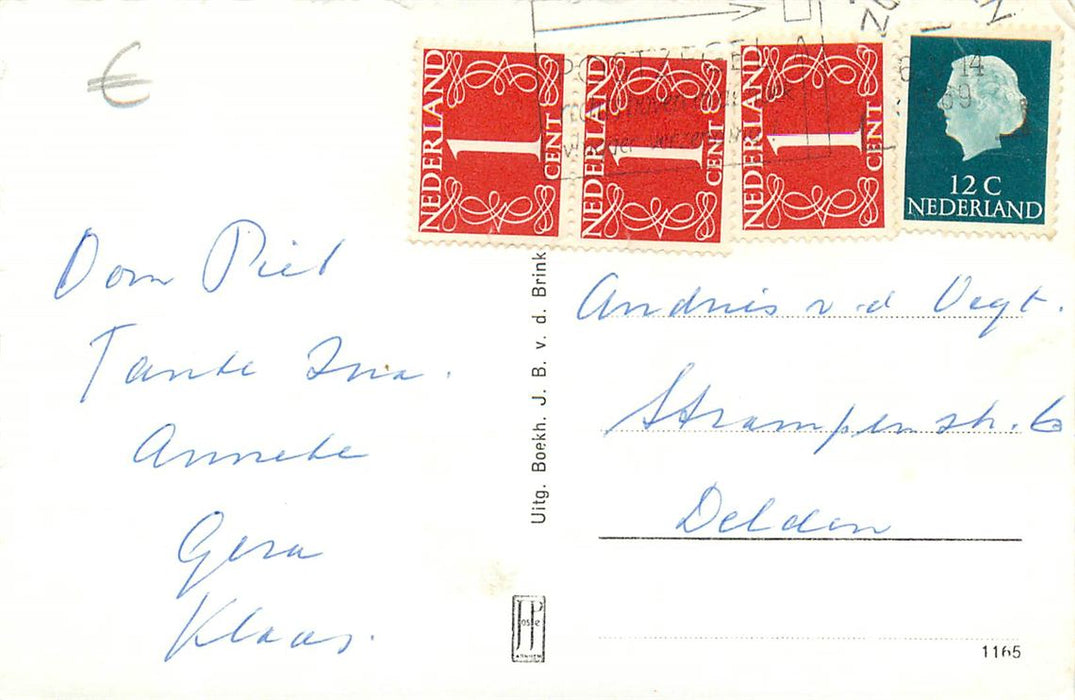 €
NEDERLAND
1
CENT
NEDERLAND
1
CENT
NEDERLAND
1
CENT
12 C
NEDERLAND
POSTZEGEL
14
69
Oom Piet
Tante Ina.
Anneke
Gera
Klaas.
Uitg. Boekh. J. B. v. d. Brink
Andries v d Vegt.
Strampenstr. 6
Delden
JP
ARNHEM
1165